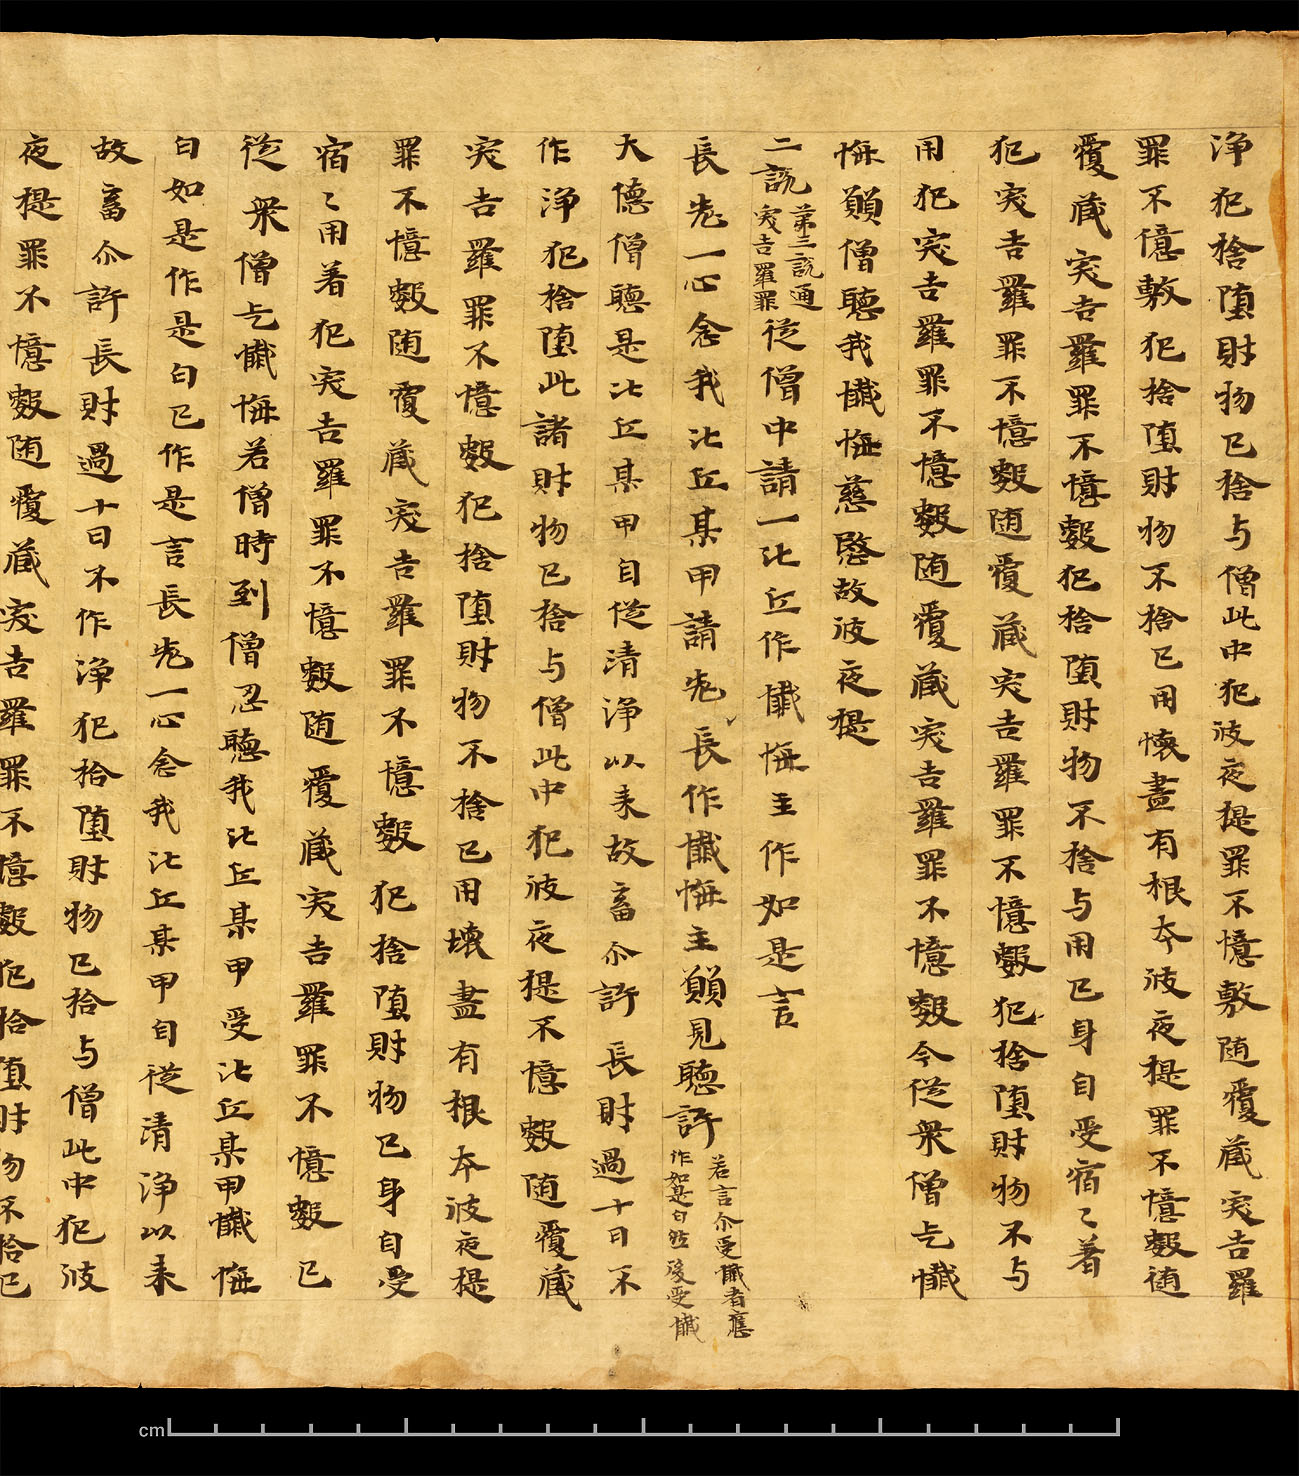 淨犯捨墮財物已捨与僧此中犯波夜提罪不憶數随覆藏突吉羅
罪不憶數犯捨墮財物不捨已用壞盡有根夲波夜提罪不憶數随
覆藏突吉羅罪不憶數犯捨墮財物不捨与用已身自受宿〻著
犯突吉羅罪不憶數随覆藏突吉羅罪不憶數犯捨墮財物不与
用犯突吉羅罪不憶數随覆藏突吉羅罪不憶數今從衆僧乞懺
悔願僧聽我懺悔慈愍故波夜提
二説第三説通突吉羅罪從僧中請一比丘作懺悔主作如是言
長老一心念我比丘某甲請老長作懺悔主願見聽許若言尒受懺者應作如是白然後受懺
大德僧聽是比丘某甲自從清淨以来故畜尒許長財過十日不
作淨犯捨墮此諸財物已捨与僧此中犯波夜提不憶數随覆藏
突吉羅罪不憶數犯捨墮財物不捨已用壞盡有根夲波夜提
罪不憶數随覆藏突吉羅罪不憶數犯捨墮財物已身自受
宿〻用着犯突吉羅罪不憶數随覆藏突吉羅罪不憶數已
從衆僧乞懺悔若僧時到僧忍聽我比丘某甲受比丘某甲懺悔
白如是作是白已作是言長老一心念我比丘某甲自從清淨以来
故畜尒許長財過十日不作淨犯捨墮財物已捨与僧此中犯波
夜提罪不憶數随覆藏突吉羅罪不憶數犯捨墮財物不捨已